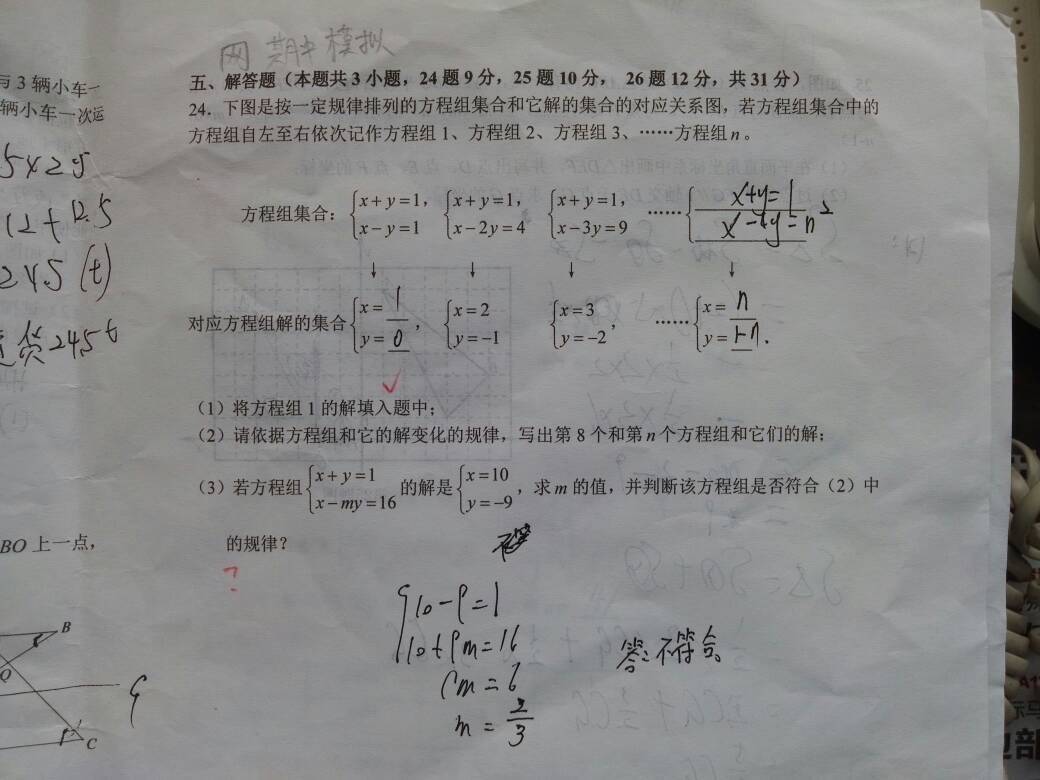 网 期中模拟
与 3 辆小车一
辆小车一次运
5×25
12+12.5
245 (t)
货 245 t
BO 上一点,
B
O
C
五、解答题(本题共 3 小题,24 题 9 分,25 题 10 分, 26 题 12 分,共 31 分)
24. 下图是按一定规律排列的方程组集合和它解的集合的对应关系图,若方程组集合中的
方程组自左至右依次记作方程组 1、方程组 2、方程组 3、……方程组 n 。
方程组集合: {x+y=1, {x+y=1, {x+y=1, ……{x+y=1
x−y=1 x−2y=4 x−3y=9 x−ny=n²
↓ ↓ ↓ ↓
对应方程组解的集合 {x=1 {x=2 {x=3 ……{x=n
y=0, y=−1 y=−2, y=1-n.
✓
(1)将方程组 1 的解填入题中;
(2)请依据方程组和它的解变化的规律,写出第 8 个和第 n 个方程组和它们的解;
(3)若方程组{x+y=1 的解是{x=10 ,求 m 的值,并判断该方程组是否符合(2)中
x−my=16 y=−9
的规律?
?
{10-9=1
10+9m=16
9m=6
m=2/3
答:不符合。